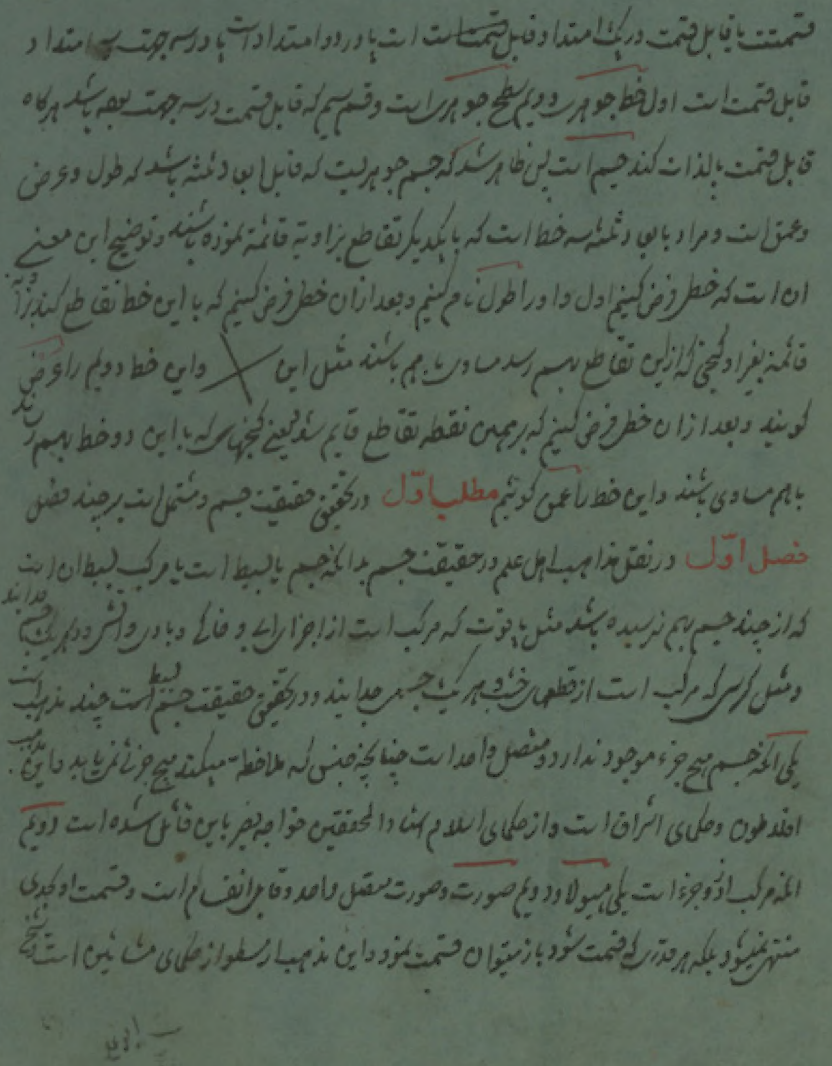 قسمتست یا قابل قسمت در یک امتداد و قابل قسمت است یا در دو امتداد است یا در سه جهت امتداد
قابل قسمت است اول خط جوهری دویم سطح جوهری است و قسم سیم که قابل قسمت در سه جهت بوده باشد هرگاه
قابل قسمت بالذات کند جسم است پس ظاهر شد که جسم جوهریست که قابل ابعاد ثلثه باشد که طول و عرض
و عمق است و مراد بابعاد ثلثه سه خط است که با یکدیگر تقاطع بزاویه قائمه نموده باشند و توضیح این معنے
ان است که خطی فرض کنیم اول و او را طول نام کنیم و بعد از ان خطی فرض کنیم که با این خط تقاطع کند بزاویه
قائمه یعنی از دو کنجی که از این تقاطع بهم رسد مساوی با هم باشند مثل این و این خط دویم را عرض
گویند و بعد از ان خطی فرض کنیم که بر همین نقطه تقاطع قایم شود یعنی کنجهای که با این دو خط بهم رسد
با هم مساوی باشند و این خط را عمق گوئیم مطلب اوّل در تحقیق حقیقت جسم و مشتمل است بر چند فصل
فصل اوّل در نقل مذاهب اهل علم در حقیقت جسم بدانکه جسم یا بسیط است یا مرکب بسیط ان است
که از چند جسم بهم نرسیده باشد مثل یاقوت که مرکب است از اجزای ابی و خاکی و بادی و آتشی
و مثل کرسی که مرکب است از قطعهای خشب و هر یک جسمی جدایند و در تحقیق حقیقت جسم بسیط چند مذهب است
یکی انکه جسم هیچ جزء موجود ندارد و متصل واحد است چنانچه حس که ملاحظه میکند هیچ جزئے نمی‌یابد و این مذهب
افلاطون و حکمای اشراق است و از حکمای اسلام استاد المحققین خواجه نصیر باین قائل شده است دویم
انکه مرکب از دو جزء است یکی هیولا و دویم صورت و صورت متصل واحد و قابل انقسام است و قسمت او بحدی
منتهی نمیشود بلکه هر قدری که قسمت شود باز میتوان قسمت نمود و این مذهب ارسطو از حکمای مشائین است و شیخ